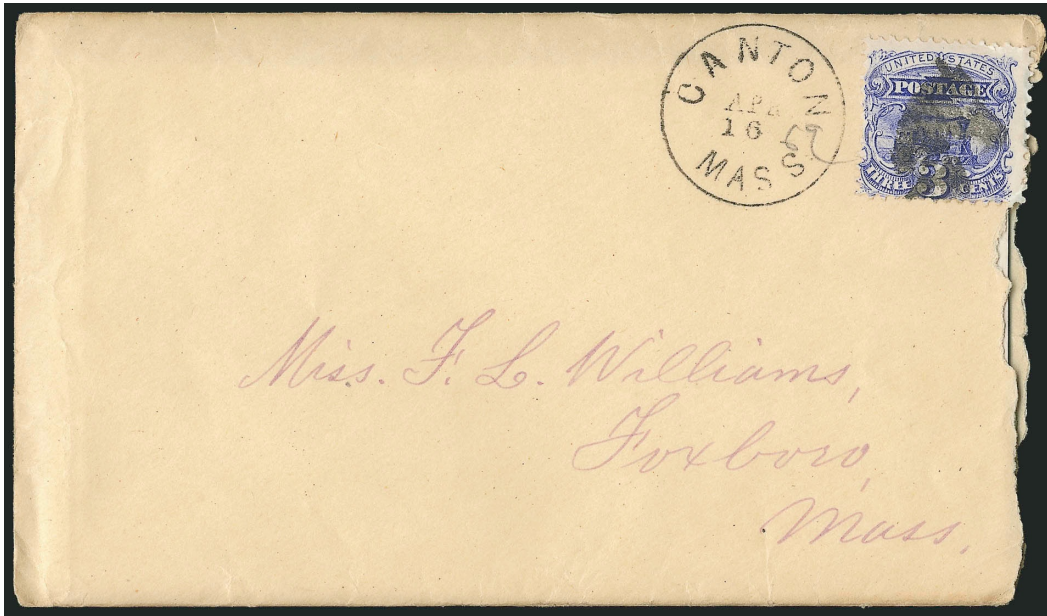 CANTON
APR
16 69
MASS.
UNITED STATES
POSTAGE
THREE 3 CENTS
Miss. F. L. Williams,
Foxboro,
Mass.